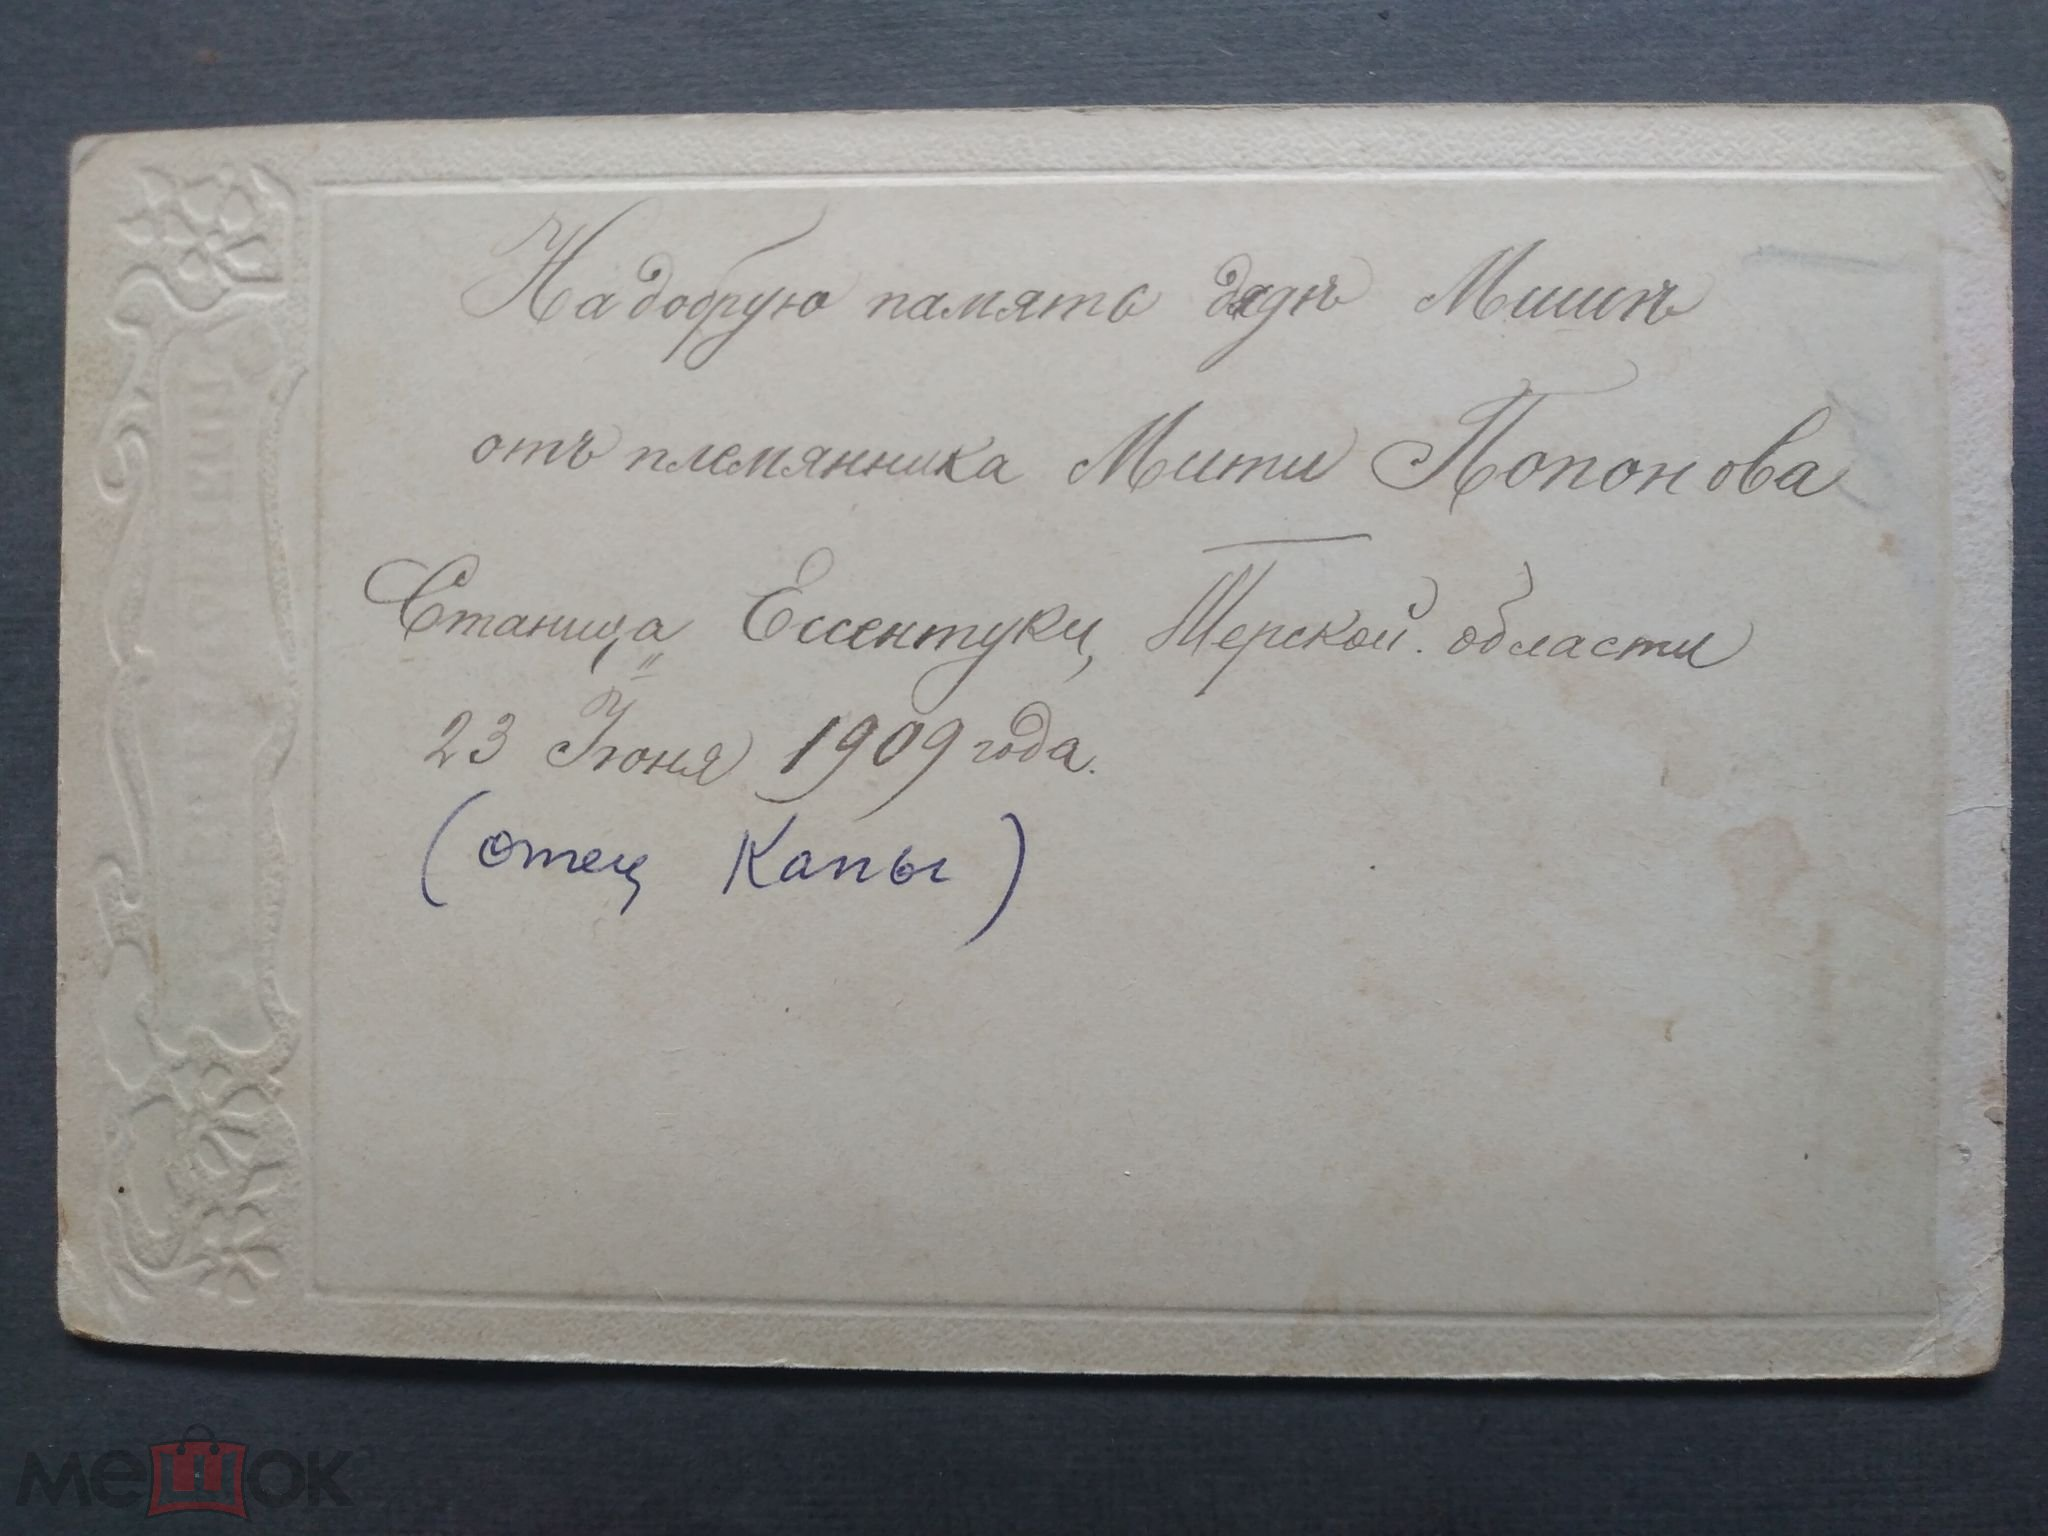 На добрую память дядѣ Мишѣ
отъ племянника Мити Попонова
Станица Ессентуки, Терской области
23 Іюня 1909 года.
(отец Капы)
мешок